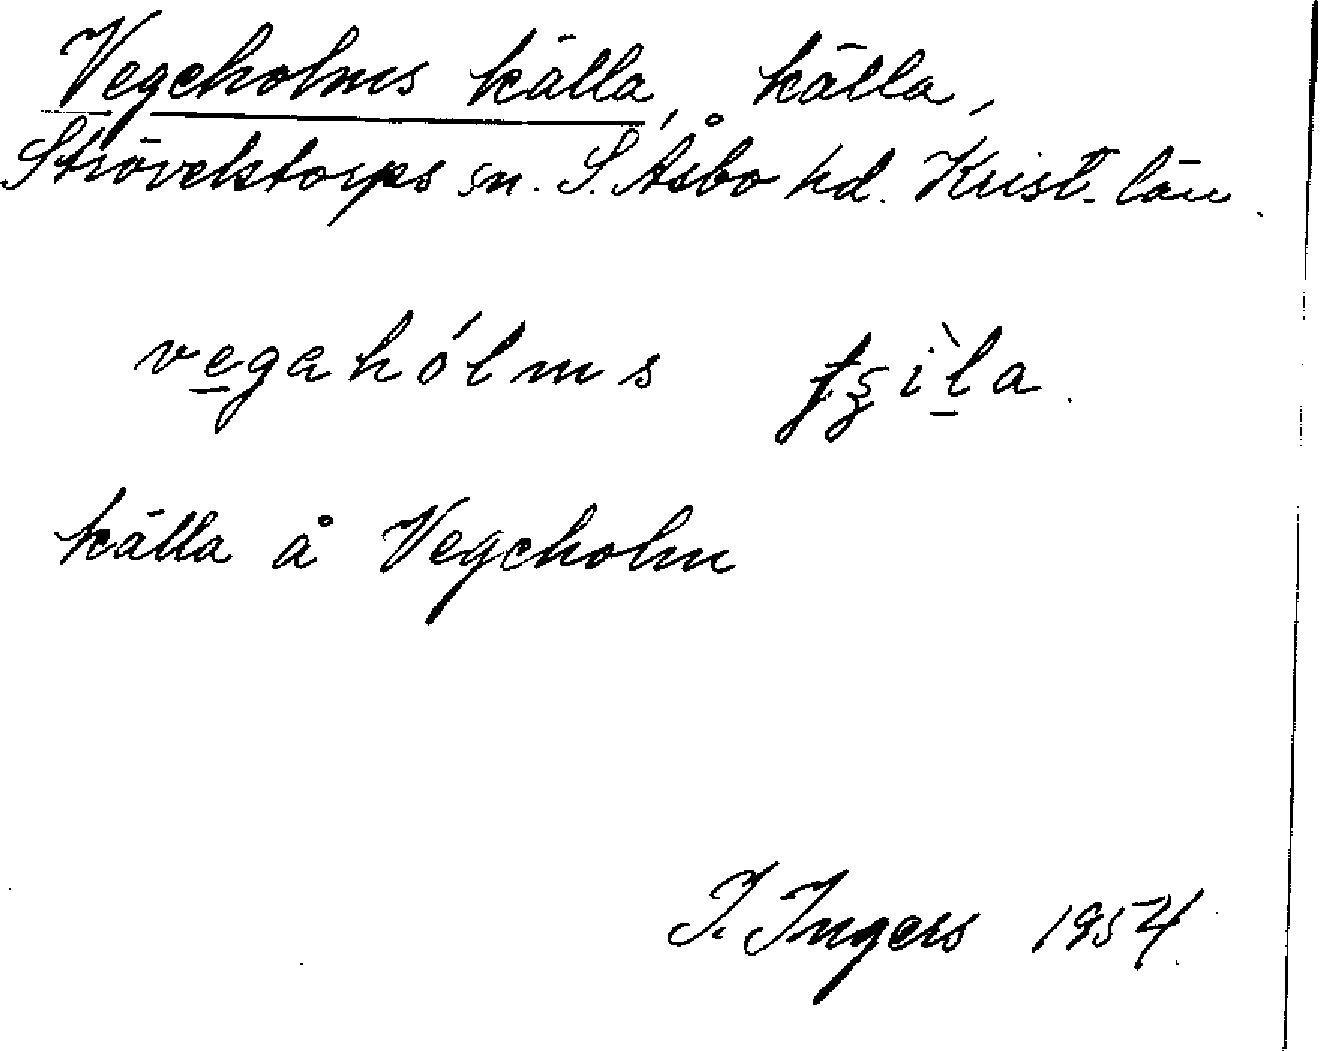 Vegeholms källa, källa,
Strövelstorps sn. S. Åsbo hd. Krist. län.
vegahólms
källa å Vegeholm
I. Ingers 1954.